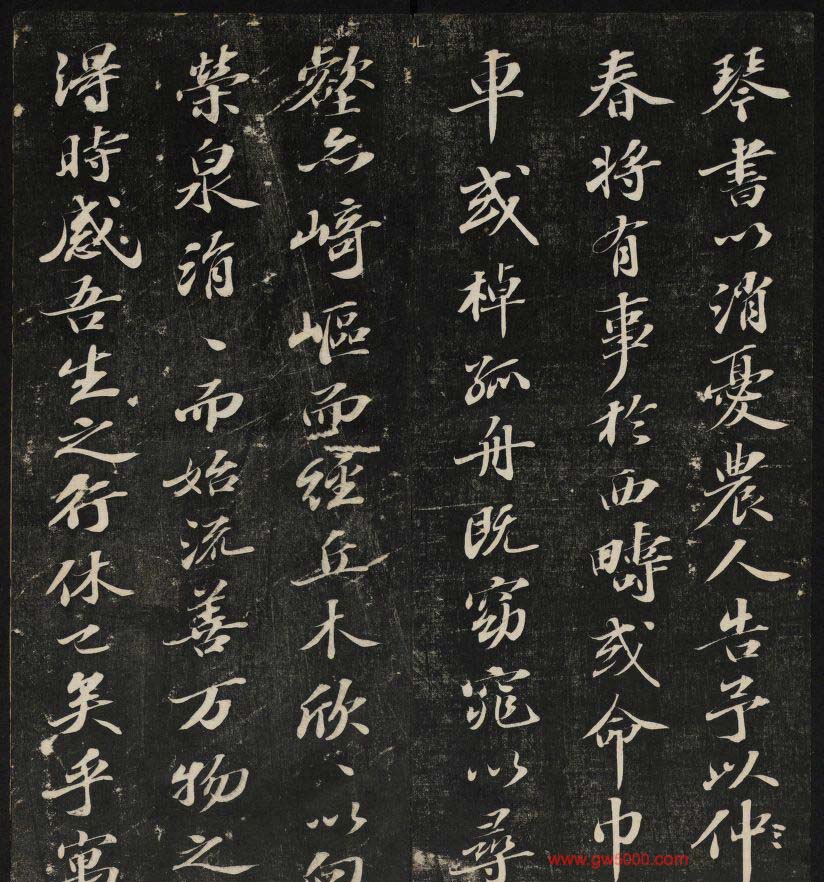 琴書以消憂農人告予以仲
春將有事於西疇或命巾
車或棹孤舟既窈窕以尋
壑亦崎嶇而經丘木欣、以向
榮泉涓、而始流善万物之
得時感吾生之行休已矣乎寓
www.gw5000.com